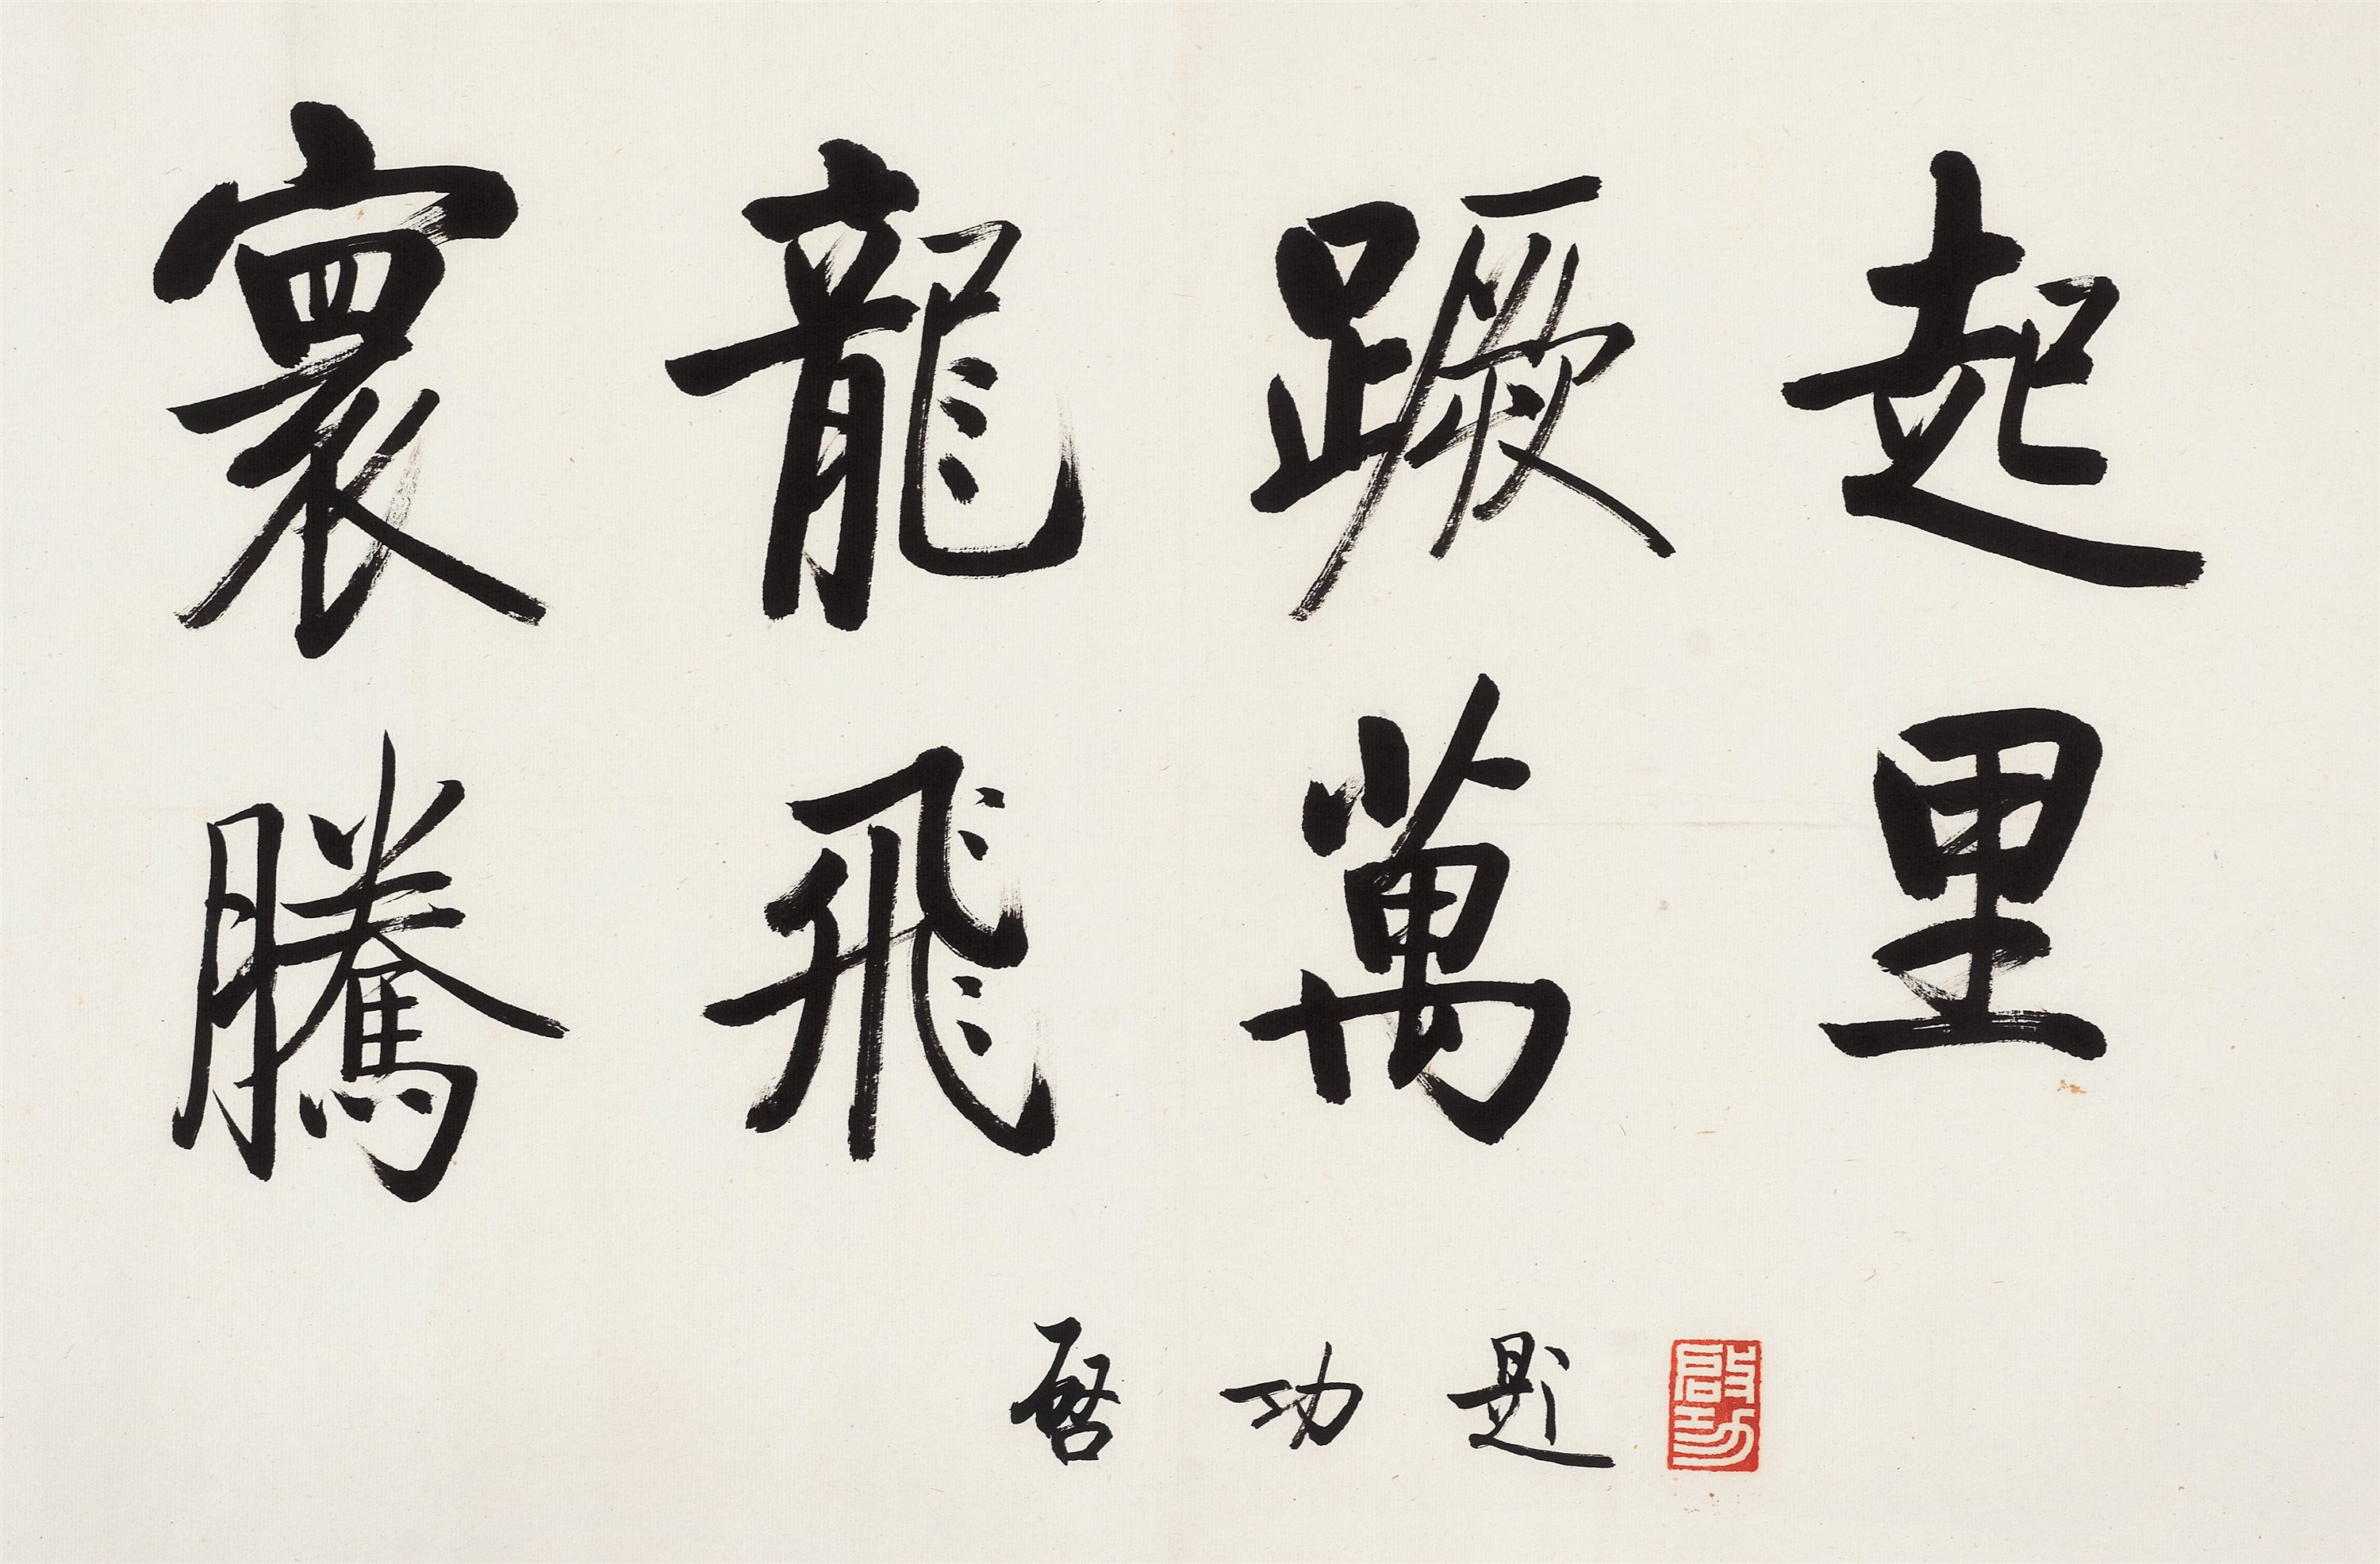 寰龍蹶起
騰飛萬里
啓功題
啟功